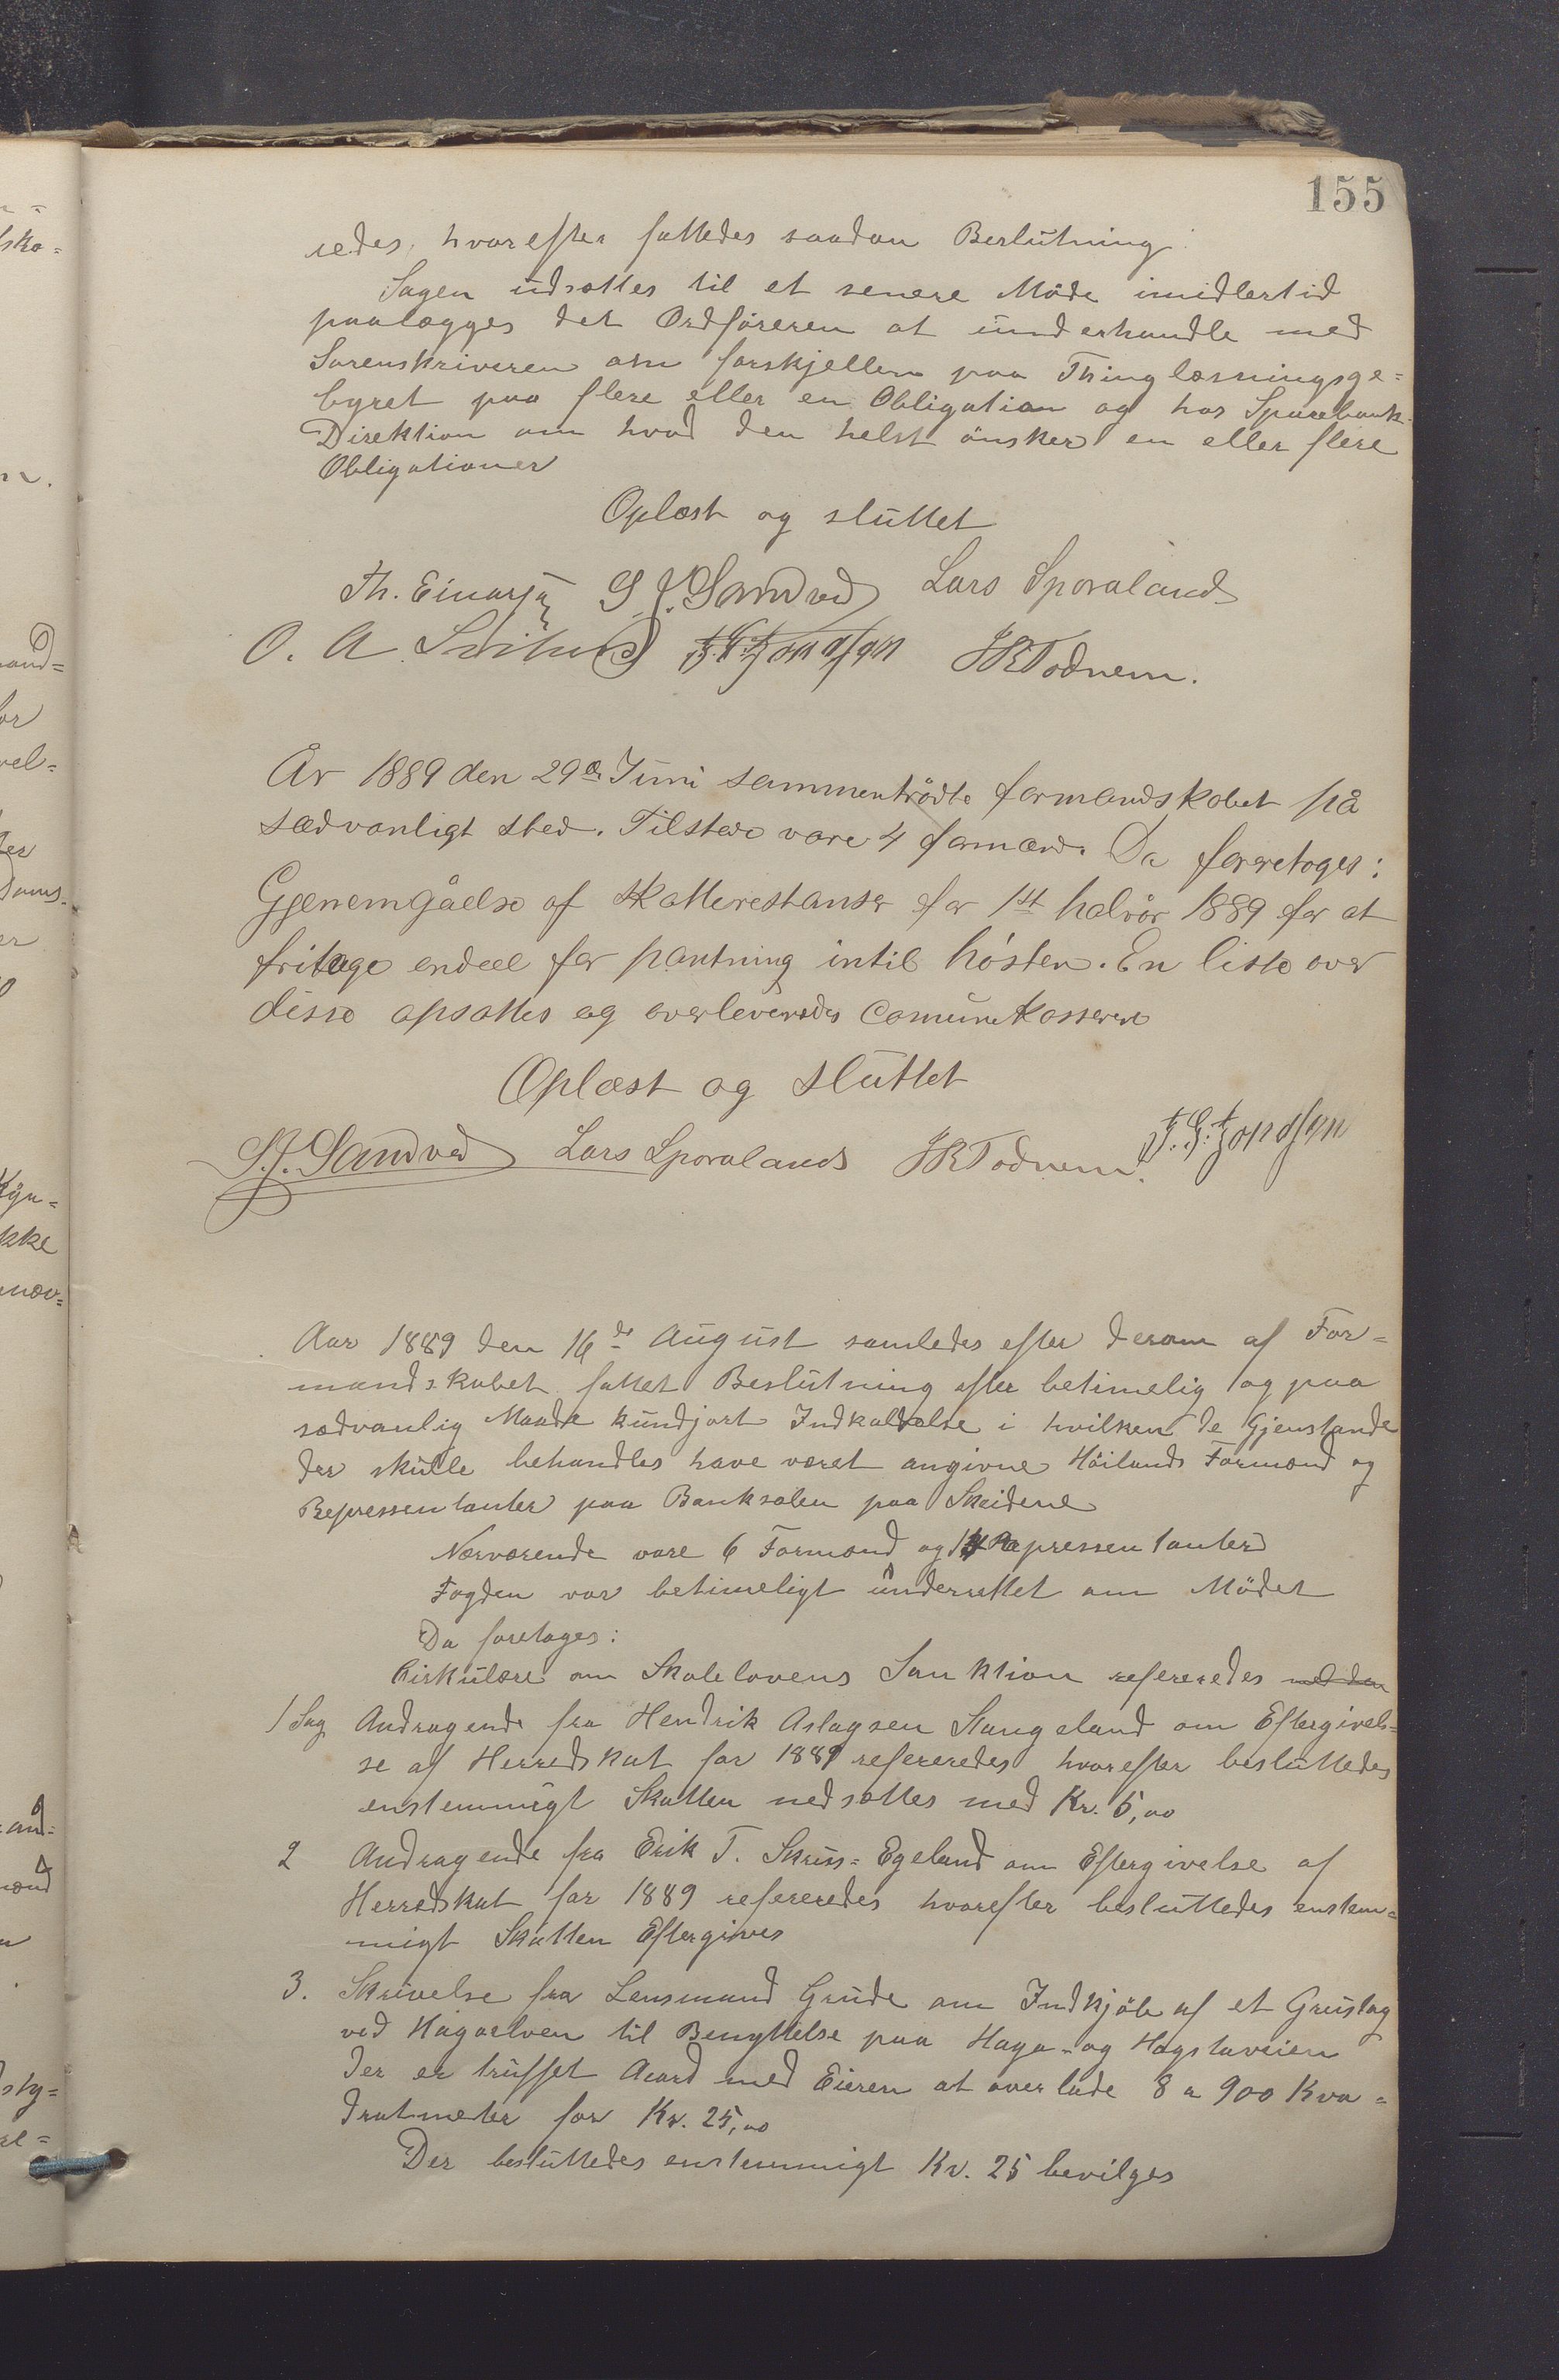 155
redes, hvorefter fattedes saadan Beslutning:
Sagen udsættes til et senere Möde imidlertid
paalægges det Ordföreren at underhandle med
Sorenskriveren om forskjellen paa Thinglæsningsge=
byret paa flere eller en Obligation og hos Sparebank-
Direktion om hvad den helst önsker en eller flere
Obligationer
Oplæst og sluttet
Th. Einarsen S. J. Sandved Lars Sporaland
O. A. T. G. Jonassen J R Todnem.
År 1889 den 29de Juni sammentrådte formandskabet på
sædvanligt sted. Tilstede vare 4 formænd. Da foretoges:
Gjenemgåelse af skatterestanser for 1st halvår 1889 for at
fritage endeel for pantning intil hösten. En liste over
disse opsattes og overleveredes Comunekassereren
Oplæst og sluttet
S. J. Sandved Lars Sporalands J R Todnem. T. G. Jonassen
Aar 1889 den 16de August samledes efter derom af For=
mandskabet fattet Beslutning efter betimelig og paa
sædvanlig Maade kundjort Indkaldelse i hvilken de Gjenstande
der skulle behandles have været angivne Höilands Formænd og
Repressentanter paa Banksalen paa Skeidene
Nærværende vare 6 Formænd og Repressentanter
Fogden var betimeligt underrettet om Mödet
Da foretages:
Cirkulære om Skolelovens Sanktion refereredes med den
1 Sag Andragende fra Hendrik Aslagsen Stangeland om Eftergivel=
se af Herredskat for 1889 refereredes hvorefter besluttedes
enstemmigt Skatten nedsættes med Kr. 5,00
2 Andragende fra Erik T. Skruss=Egeland om Eftergivelse af
Herredskat for 1889 refereredes hvorefter besluttedes enstem=
migt Skatten Eftergives
3. Skrivelse fra Lensmand Grude om Indkjöb af et Grustag
ved Hagaelven til Benyttelse paa Haga- og Hogstaveien
der er truffet Acord med Eieren at overlade 8 a 900 Kva=
dratmeter for Kr. 25,00
Der besluttedes enstemmigt Kr. 25 bevilges